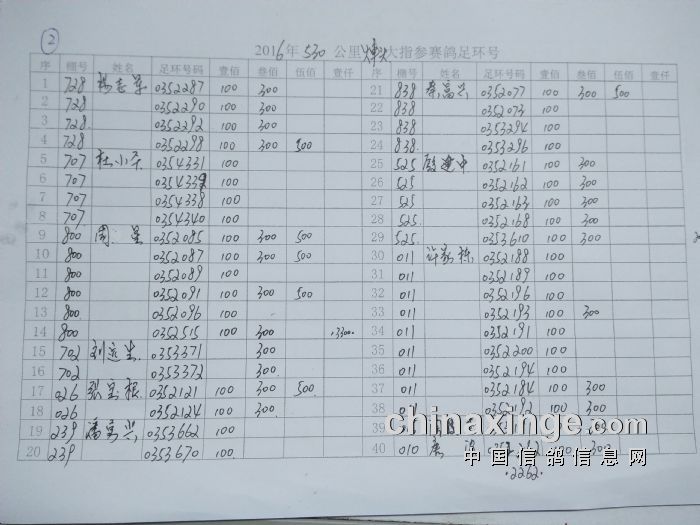 ②
2016年 530 公里 大指参赛鸽足环号
序 棚号 姓名 足环号码 壹佰 叁佰 伍佰 壹仟 序 棚号 姓名 足环号码 壹佰 叁佰 伍佰 壹仟
1 728 杨志军 0352287 100 300 21 838 蔡富兴 0352077 100 300 500
2 728 0352290 100 300 22 838 0352073 100
3 728 0352292 100 300 23 838 0353294 100
4 728 0352298 100 300 500 24 838 0353296 100
5 707 杜小 0354331 100 25 525 殷建中 0352161 100 300
6 707 100 26 525 0352162 100 300
7 707 0354338 100 27 525 0352163 100 300
8 707 0354340 100 28 525 0352168 100 300
9 800 周 0352085 100 300 500 29 525 0353610 100 300
10 800 0352087 100 300 500 30 011 许 0352188 100
11 800 0352089 100 31 011 0352189 100
12 800 0352091 100 300 500 32 011 0352196 100
13 800 0352096 100 33 011 0352193 100 300
14 800 0352515 100 300 34 011 0352191 100
15 702 刘 0353371 300 35 011 0352200 100
16 702 0353372 300 36 011 0352194 100
17 026 张 0352121 100 300 500 37 011 0352184 100 300
18 026 0352124 100 300 38 011 100 300
19 239 潘 兴 0353662 100 39
20 239 0353670 100 40 010 唐 100 300
2262
chinaxinge.com
中国信鸽信息网